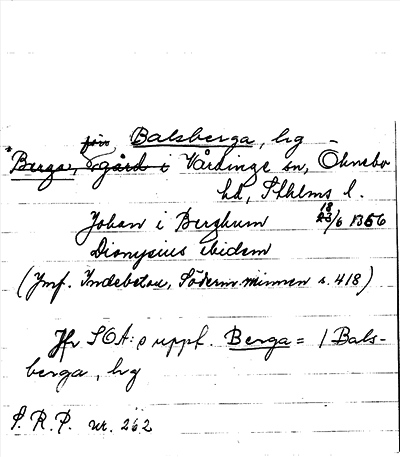 förs. Balsberga, hg
*Berga, ödegård i Vårdinge sn, Öknebo
hd, Sthlms l.
Johan i Berghum 18/6 1356
Dionysius ibidem
(Jmf. Indebetou, Söderm. minnen s. 418)
Jfr SOA:s uppf. Berga = / Bals-
berga, hg
S. R. P. nr. 262